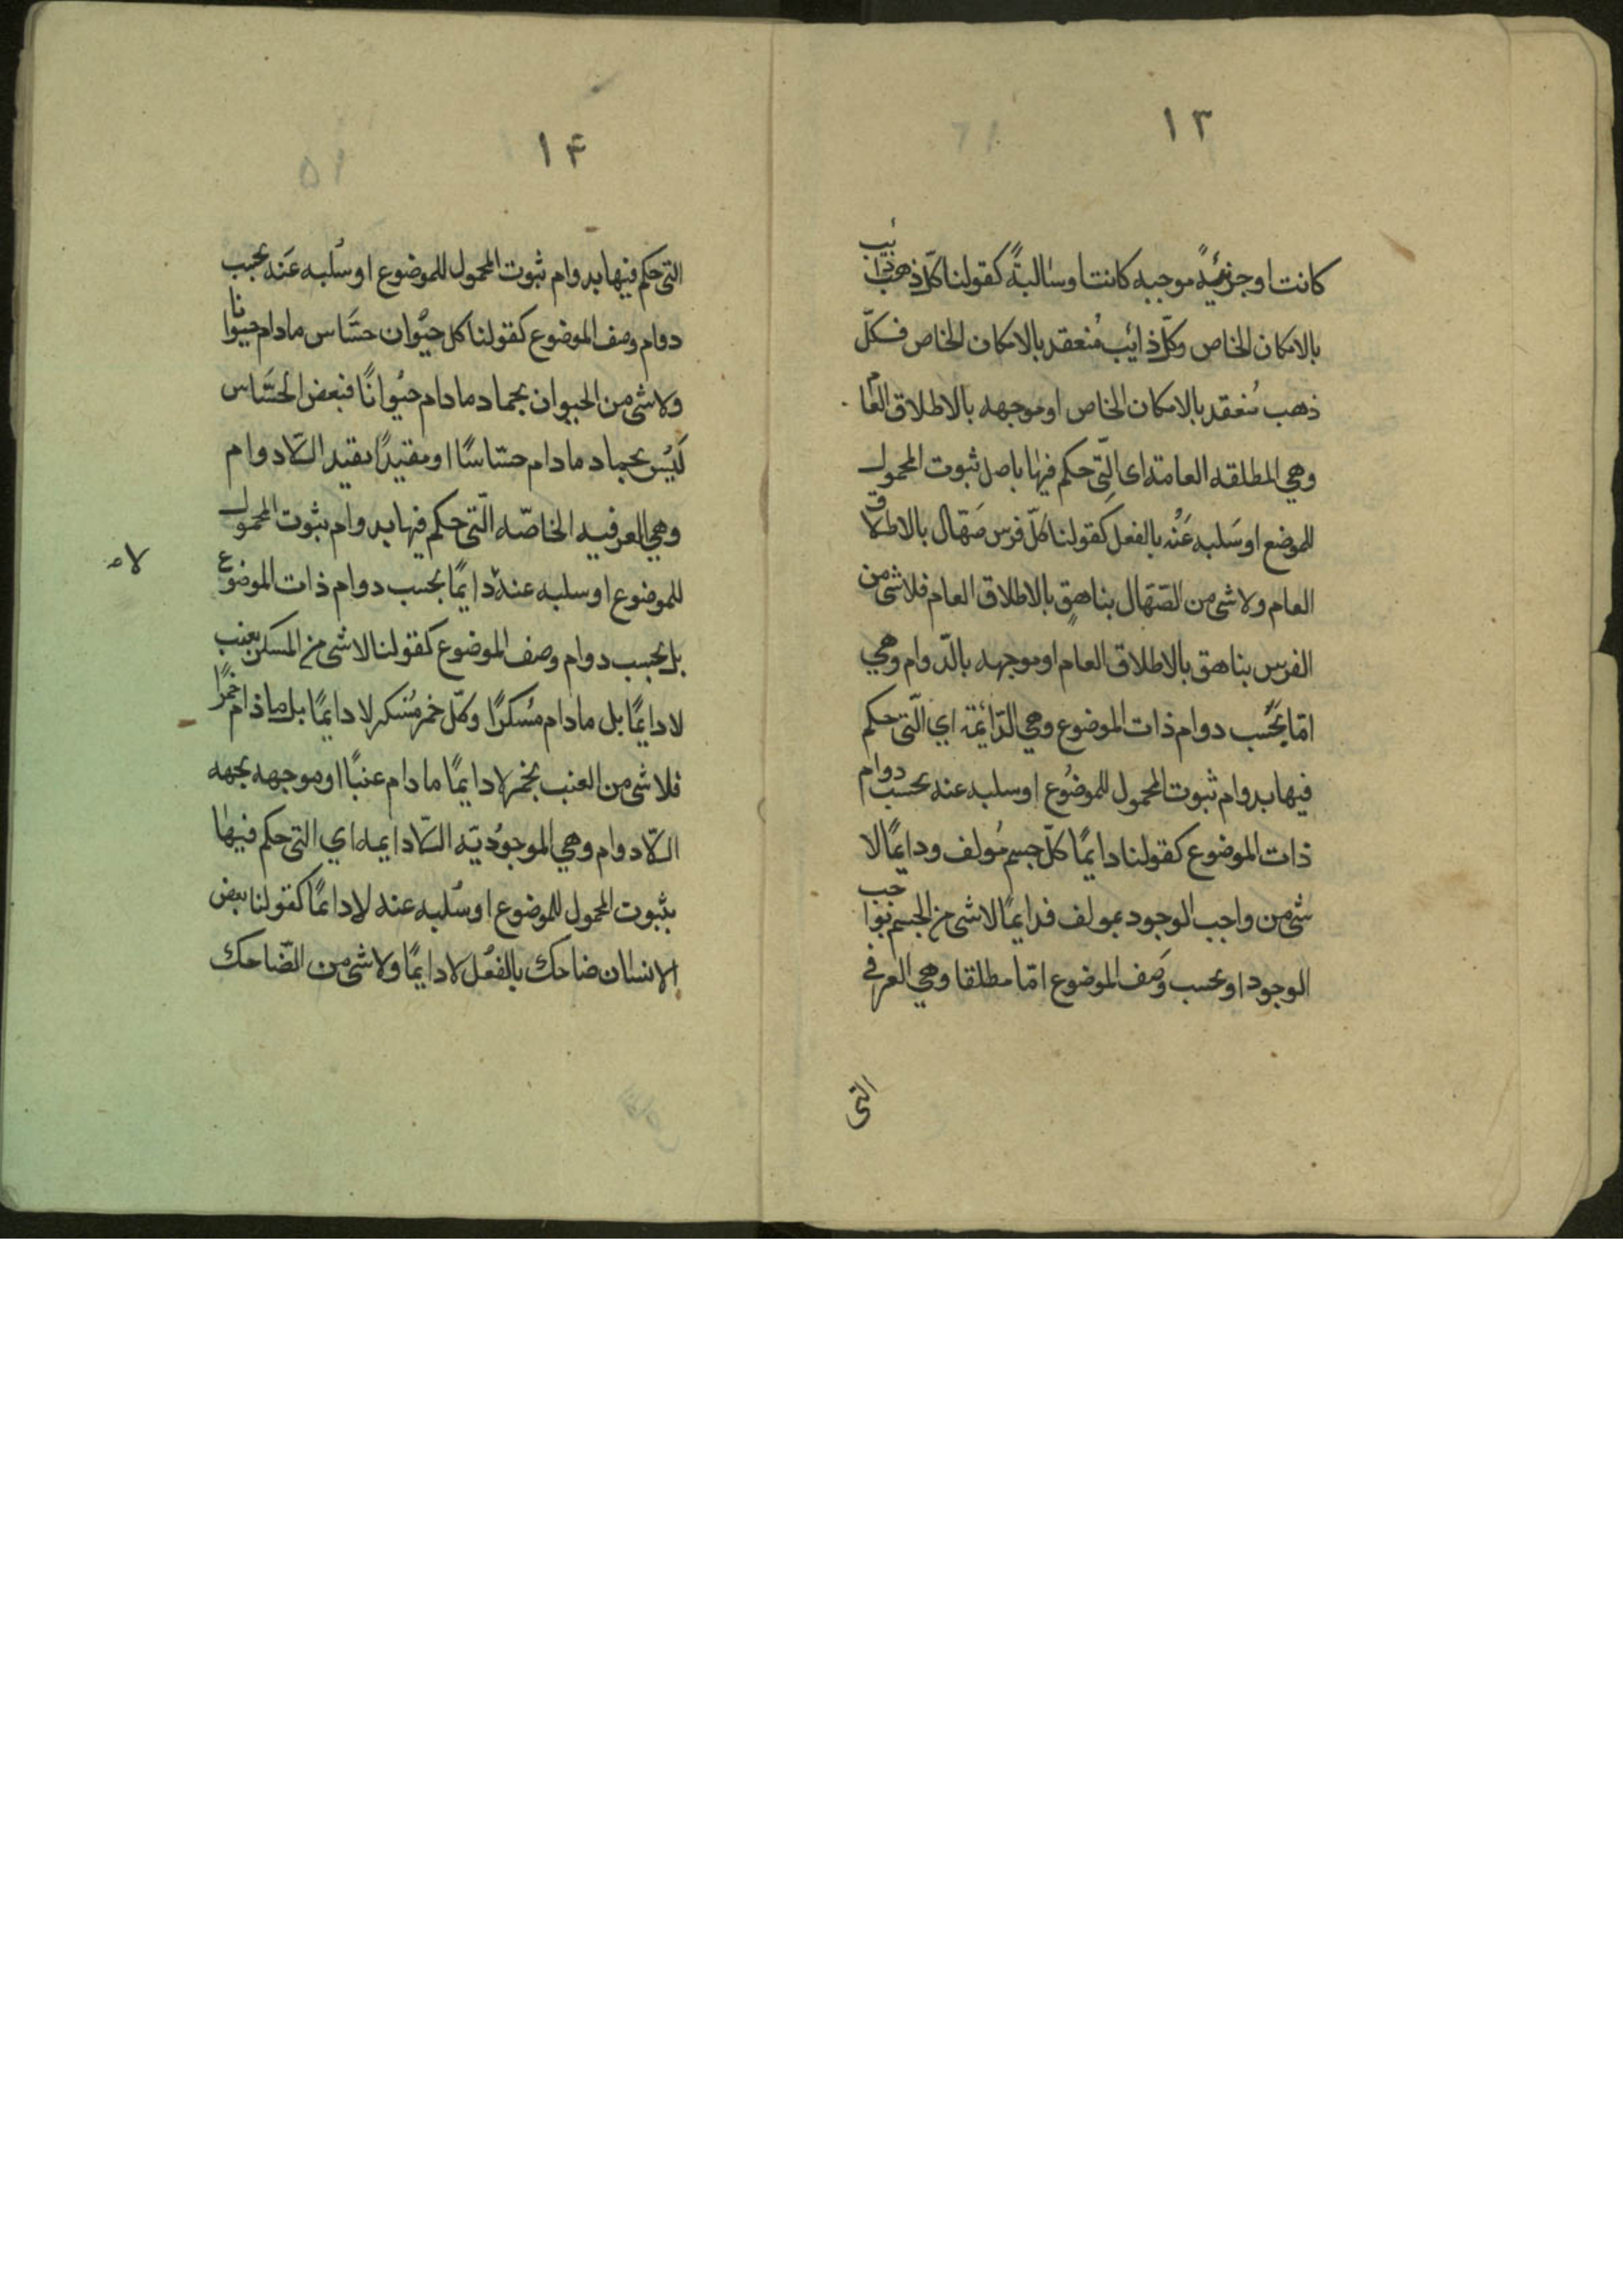 ١٣
كانت او جزئيةً موجبه كانت او سالبةً كقولنا كلّ ذهب ذائب
بالامكان الخاص وكلّ ذائب مُنعقد بالامكان الخاص فكلّ
ذهب مُنعقد بالامكان الخاص او موجهه بالاطلاق العام
وهي المطلقه العامة اى الّتى حكم فيها باصل ثبوت المحمول
للموضع او سَلبه عَنْه بالفعل كقولنا كلّ فرس صَهّال بالاطلاق
العام ولا شى من الصَهّال بناهق بالاطلاق العام فلا شى من
الفرس بناهق بالاطلاق العام او موجهه بالدّوام وهي
امّا بحَسب دوام ذات الموضوع وهي الدّائمة اي الّتى حكم
فيها بدوام ثبوت المحمول للموضُوع او سلبه عنه بحسب دوام
ذات الموضوع كقولنا دايمًا كلّ جسم مُولف ودايمًا لا
شى من واجب الوجود بمولف فدايمًا لا شى من الجسم بواجب
الوجود او بحسب وَصف الموضوع امّا مطلقا وهي العرفي
التى
١۴
التى حكم فيها بدوام ثبوت المحمول للموضوع او سُلبه عَنه بحسب
دوام وصف الموضوع كقولنا كل حيُوان حسَّاس مادام حيوانا
ولا شى من الحيوان بجماد مادام حيُوانًا فبعض الحسَّاس
لَيْس بجماد مادام حسّاسًا او مقيدًا بقيد اللّادوام
وهي العرفيه الخاصّه الّتى حكم فيها بدوام بثوت المحمول
للموضوع او سلبه عنه دايمًا بحسب دوام ذات الموضوع
لاه
بل بحسب دوام وصف الموضوع كقولنا لا شى من المسكر بعنب
لا دايمًا بل مادام مُسكرًا وكلّ خمر مُسكر لا دايمًا بل ماذام خمرًا
فلا شى من العنب بخمر لا دايمًا مادام عنبًا او موجهه بجهه
اللّادوام وهي الموجوُديّه اللّادايمه اي التى حكم فيها
بثبوت المحمول للموضوع او سُلبه عنه لا دايمًا كقولنا بعض
الانسان ضاحك بالفعُل لا دايمًا ولا شى من الضّاحك